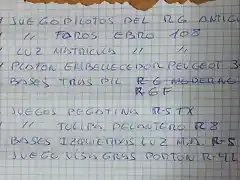 1 JUEGO PILOTOS DEL R6 ANTIGU
1 " FAROS EBRO 108
1 LUZ MATRICULA " "
1 PLAFON EMBELLECEDOR PEUGEOT 3
BASES TRAS PIL R-6 MODERNO
R6F
JUEGOS PEGATINA R-5 TX
" TULIPA DELANTERO R8
BASES IZQUIERDAS LUZ M.A. R-5
JUEGO VISAGRAS PORTON R-4L